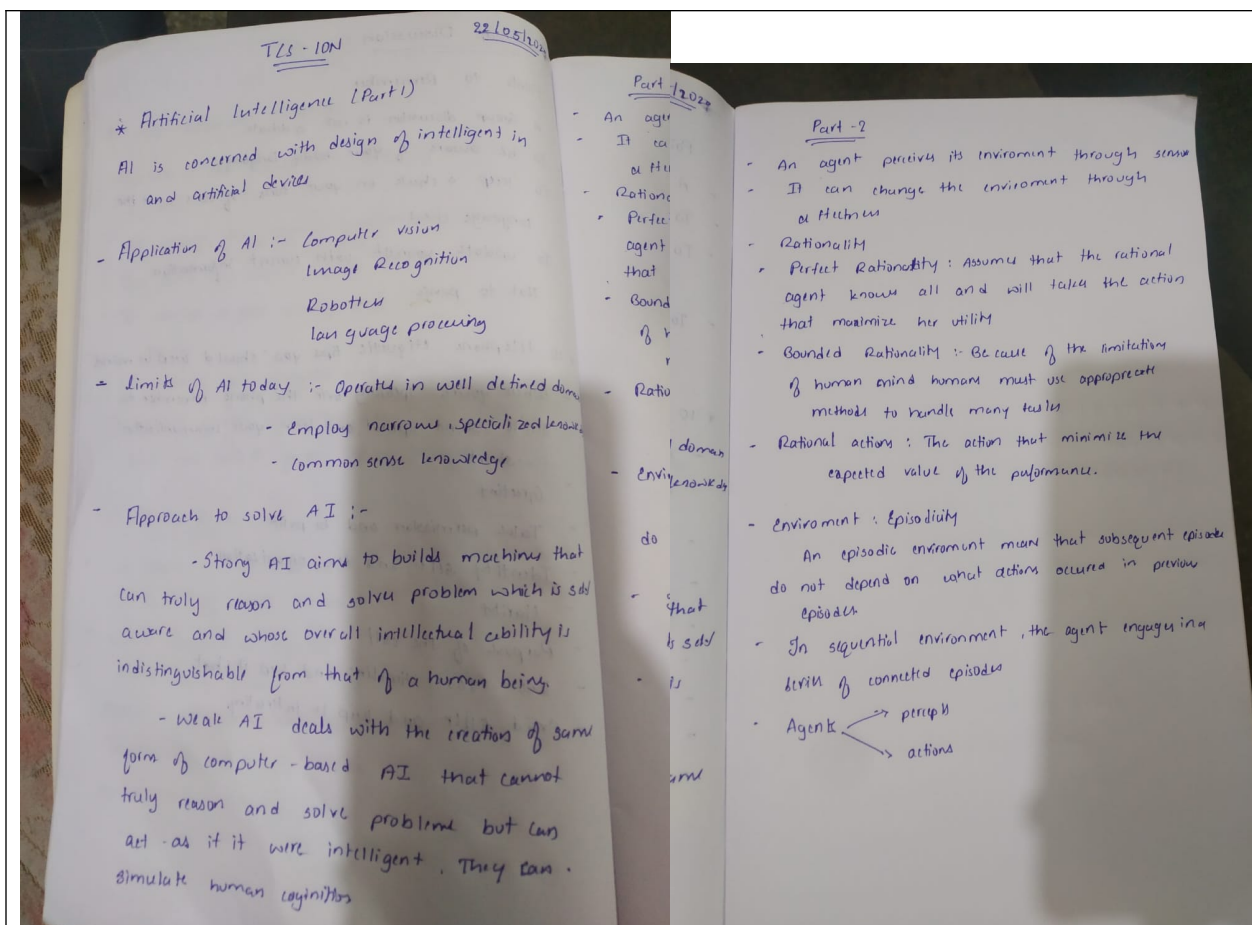 TCS - ION
22/05/202
* Artificial Intelligence (Part 1)
AI is concerned with design of intelligent in
and artificial devices
- Application of AI :- Computer vision
Image Recognition
Robotics
language processing
- limits of AI today :- Operates in well defined doma
- employ narrow, specialized knowle
- common sense knowledge
- Approach to solve AI :-
- Strong AI aims to builds machines that
can truly reason and solve problem which is self
aware and whose overall intellectual ability is
indistinguishable from that of a human being.
- Weak AI deals with the creation of same
form of computer - based AI that cannot
truly reason and solve problems but can
act as if it were intelligent. They can.
simulate human
Part
/202
- An age
- It ca
- Rationa
- Perfec
agent
that
- Bound
of h
- Ratio
doman
- Envi
knowledg
do
that
s self
is
ame
Part - 2
- An agent perceives its enviroment through sensor
- It can change the enviroment through
- Rationality
- Perfect Rationality : Assumes that the rational
agent knows all and will takes the action
that maximize her utility
- Bounded Rationality :- Because of the limitation
of human mind humans must use
methods to handle many tasks
- Rational actions : The action that minimize the
expected value of the performance.
- Enviroment : Episodicity
An episodic enviroment means that subsequent episodes
do not depend on what actions occured in previous
episodes
- In sequential environment, the agent engages in a
series of connected episodes
- Agents
percepts
actions